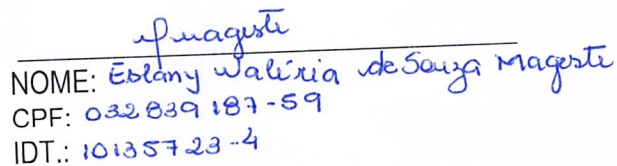 Magesti
NOME: Eslany Waléria de Souza Magesti
CPF: 032839187-59
IDT.: 10135723-4